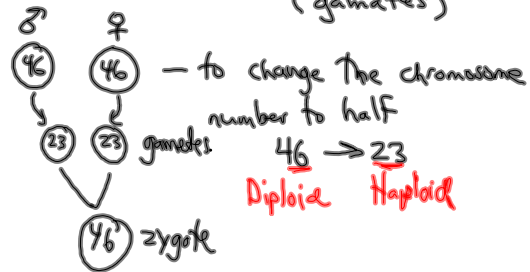 (gametes)
♂ ♀
46 46 — to change the chromosome
number to half
23 23 gametes. 46 → 23
Diploid Haploid
46 zygote